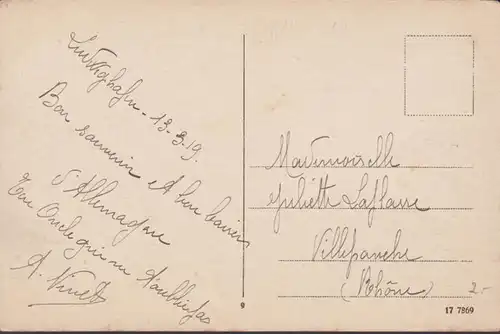 Ludwighafen - 13-3-19.
Bon souvenir et bon baisers
d'Allemagne
Ton Oncle qui ne t'oublie pas
A. Vinet
Mademoiselle
Juliette Laflasse
Villefranche
(Rhône)
2.-
9
17 7869